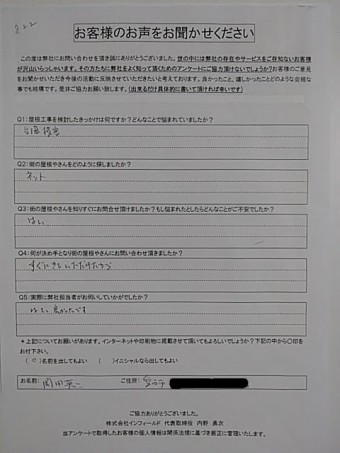 822
お客様のお声をお聞かせください
この度は弊社にお問い合わせを頂き誠にありがとうございます。世の中には弊社の存在やサービスをご存知ないお客様
が沢山いらっしゃいます。その方たちに弊社をよく知って頂くためのアンケートにご協力頂けないでしょうか?お客様のご意見
をお聞かせいただき今後の活動に反映させていきたいと考えております。良かったこと、嬉しかったことどのような些細な
事でも結構です。是非ご協力お願い致します。(出来るだけ具体的に書いて頂ければ幸いです)
Q1:屋根工事を検討したきっかけは何ですか?どんなことで悩まれていましたか?
台風被害
Q2:街の屋根やさんをどのように探しましたか?
ネット
Q3:街の屋根やさんを知りすぐにお問合せ頂けましたか?もし悩まれたとしたらどんなことがご不安でしたか?
はい
Q4:何が決め手となり街の屋根やさんにお問い合わせ頂きましたか?
すぐにきていただけたから
Q5:実際に弊社担当者がお伺いしていかがでしたか?
はい 良かったです
*上記についてお願いがあります。インターネットや印刷物に掲載させて頂いてもよろしいでしょうか?下記の中から○印を
お付け下さい。
(○)名前を出してもよい ( )イニシャルなら出してもよい
お名前: ご住所:
ご協力ありがとうございました。
株式会社インフィールド 代表取締役 内野 勇次
当アンケートで取得したお客様の個人情報は関係法規に基づき厳正に管理いたします。